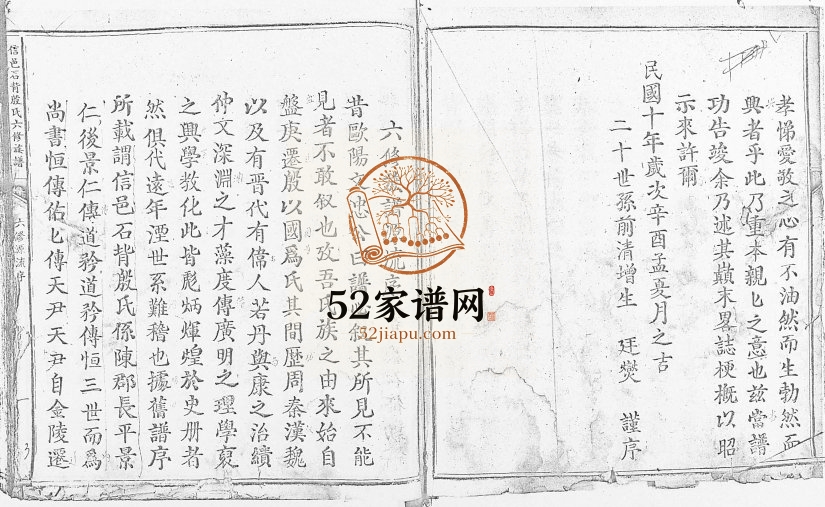 孝悌愛敬之心有不油然而生勃然而
興者乎此乃重本親匕之意也兹當譜
功告竣余乃述其巔末畧誌梗概以昭
示來許爾
民國十年歲次辛酉孟夏月之吉
二十世孫前清增生 廷爕 謹序
六修 序
昔歐陽文忠公曰譜 敘其所見不能
見者不敢叙也攷吾氏族之由來始自
盤庚遷殷以國為氏其間歷周秦漢魏
以及有晋代有偉人若丹與康之治績
仲文深淵之才藻度傳廣明之理學裒
之興學教化此皆彪炳煇煌於史册者
然俱代遠年湮世系難稽也據舊譜序
所載謂信邑石背殷氏係陳郡長平景
仁後景仁傳道矜道矜傳恒三世而爲
尚書恒傳佑匕傳天尹天尹自金陵遷
信邑石背殷氏六修族譜
六修源流序
52家谱网
52jiapu.com